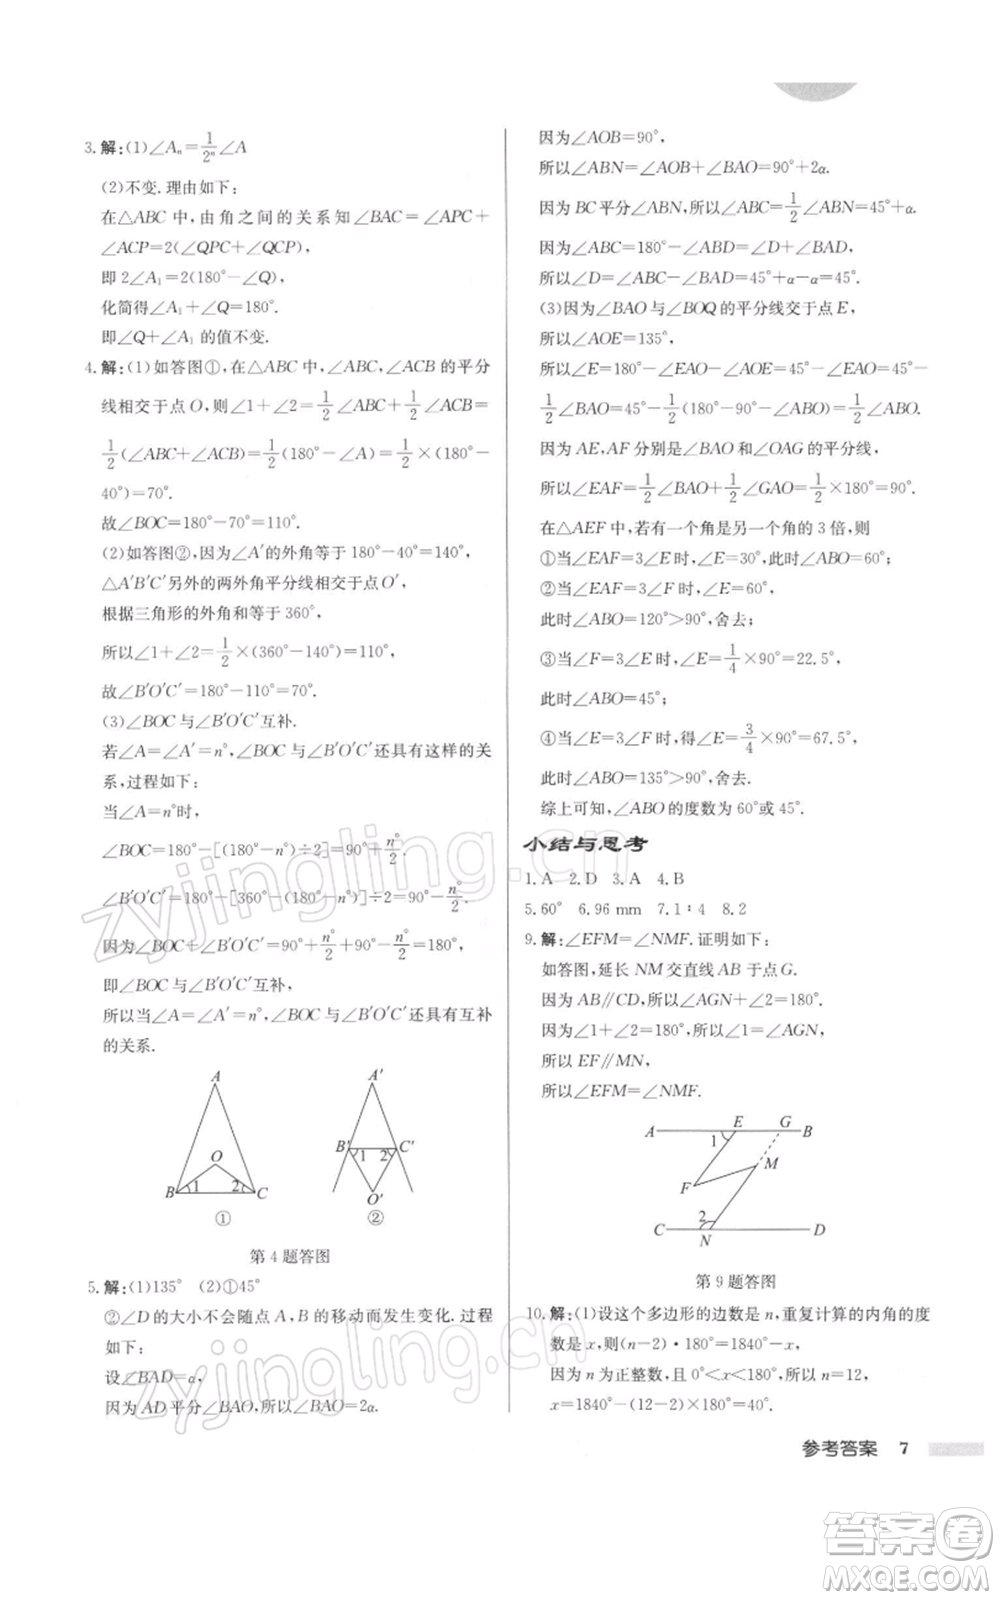 3. 解:(1)∠Aₙ=1/2ⁿ∠A
(2)不变. 理由如下:
在△ABC 中,由角之间的关系知∠BAC=∠APC+
∠ACP=2(∠QPC+∠QCP),
即 2∠A₁=2(180°-∠Q),
化简得∠A₁+∠Q=180°.
即∠Q+∠A₁ 的值不变.
4. 解:(1)如答图①,在△ABC 中,∠ABC,∠ACB 的平分
线相交于点 O,则∠1+∠2=1/2∠ABC+1/2∠ACB=
1/2(∠ABC+∠ACB)=1/2(180°-∠A)=1/2×(180°-
40°)=70°.
故∠BOC=180°-70°=110°.
(2)如答图②,因为∠A′的外角等于 180°-40°=140°,
△A′B′C′另外的两外角平分线相交于点 O′,
根据三角形的外角和等于 360°,
所以∠1+∠2=1/2×(360°-140°)=110°,
故∠B′O′C′=180°-110°=70°.
(3)∠BOC 与∠B′O′C′互补.
若∠A=∠A′=n°,∠BOC 与∠B′O′C′还具有这样的关
系,过程如下:
当∠A=n°时,
∠BOC=180°-[(180°-n°)÷2]=90°+n°/2.
∠B′O′C′=180°-[360°-(180°-n°)]÷2=90°-n°/2.
因为∠BOC+∠B′O′C′=90°+n°/2+90°-n°/2=180°,
即∠BOC 与∠B′O′C′互补,
所以当∠A=∠A′=n°,∠BOC 与∠B′O′C′还具有互补
的关系.
A
O
B
1
2
C
①
A′
B′
1
2
C′
O′
②
第 4 题答图
5. 解:(1)135° (2)①45°
②∠D 的大小不会随点 A,B 的移动而发生变化. 过程
如下:
设∠BAD=α,
因为 AD 平分∠BAO,所以∠BAO=2α.
因为∠AOB=90°,
所以∠ABN=∠AOB+∠BAO=90°+2α.
因为 BC 平分∠ABN,所以∠ABC=1/2∠ABN=45°+α.
因为∠ABC=180°-∠ABD=∠D+∠BAD,
所以∠D=∠ABC-∠BAD=45°+α-α=45°.
(3)因为∠BAO 与∠BOQ 的平分线交于点 E,
所以∠AOE=135°,
所以∠E=180°-∠EAO-∠AOE=45°-∠EAO=45°-
1/2∠BAO=45°-1/2(180°-90°-∠ABO)=1/2∠ABO.
因为 AE,AF 分别是∠BAO 和∠OAG 的平分线,
所以∠EAF=1/2∠BAO+1/2∠GAO=1/2×180°=90°.
在△AEF 中,若有一个角是另一个角的 3 倍,则
①当∠EAF=3∠E 时,∠E=30°,此时∠ABO=60°;
②当∠EAF=3∠F 时,∠E=60°,
此时∠ABO=120°>90°,舍去;
③当∠F=3∠E 时,∠E=1/4×90°=22.5°,
此时∠ABO=45°;
④当∠E=3∠F 时,得∠E=3/4×90°=67.5°,
此时∠ABO=135°>90°,舍去.
综上可知,∠ABO 的度数为 60°或 45°.
小结与思考
1. A 2. D 3. A 4. B
5. 60° 6. 96 mm 7. 1∶4 8. 2
9. 解:∠EFM=∠NMF. 证明如下:
如答图,延长 NM 交直线 AB 于点 G.
因为 AB∥CD,所以∠AGN+∠2=180°.
因为∠1+∠2=180°,所以∠1=∠AGN,
所以 EF∥MN,
所以∠EFM=∠NMF.
A
E
G
B
1
M
F
2
C
N
D
第 9 题答图
10. 解:(1)设这个多边形的边数是 n,重复计算的内角的度
数是 x,则(n-2)·180°=1840°-x,
因为 n 为正整数,且 0°<x<180°,所以 n=12,
x=1840°-(12-2)×180°=40°.
参考答案 7
zyjingling.cn
zyjingling.cn
答案卷
MXQE.COM